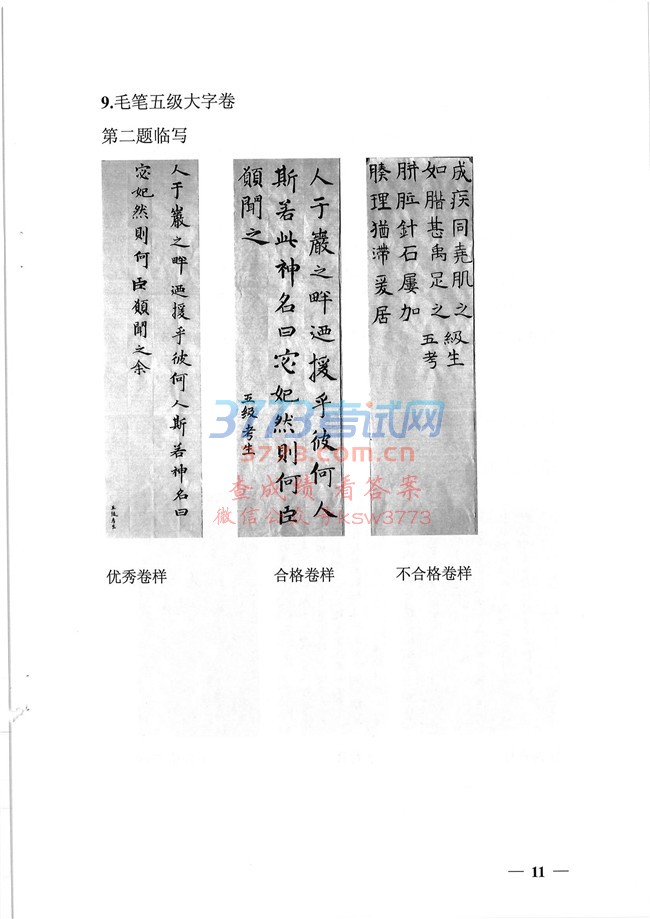 9.毛笔五级大字卷
第二题临写
人于巖之畔迺援乎彼何人斯若神名曰
宓妃然则何臣願聞之余
五級考生
人于巖之畔迺援乎彼何人
斯若此神名曰宓妃然則何臣
願聞之
五级考生
成疾同堯肌之
如腊甚禹足之
胼胝針石屢加
腠理猶滞爰居
級生
五考
3773考试网
3773.com.cn
查成绩 看答案
微信公众号ksw3773
优秀卷样
合格卷样
不合格卷样
— 11 —